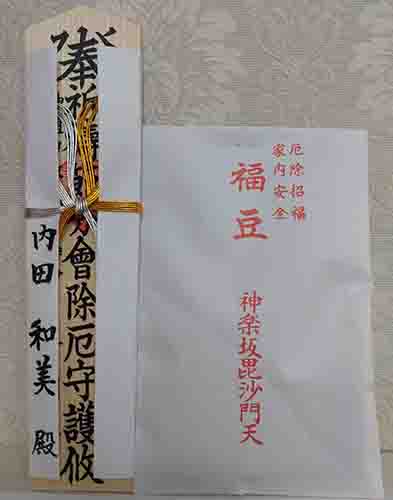 奉祈禱
會除厄守護攸
内田 和美 殿
厄除招福
家内安全
福豆
神楽坂毘沙門天